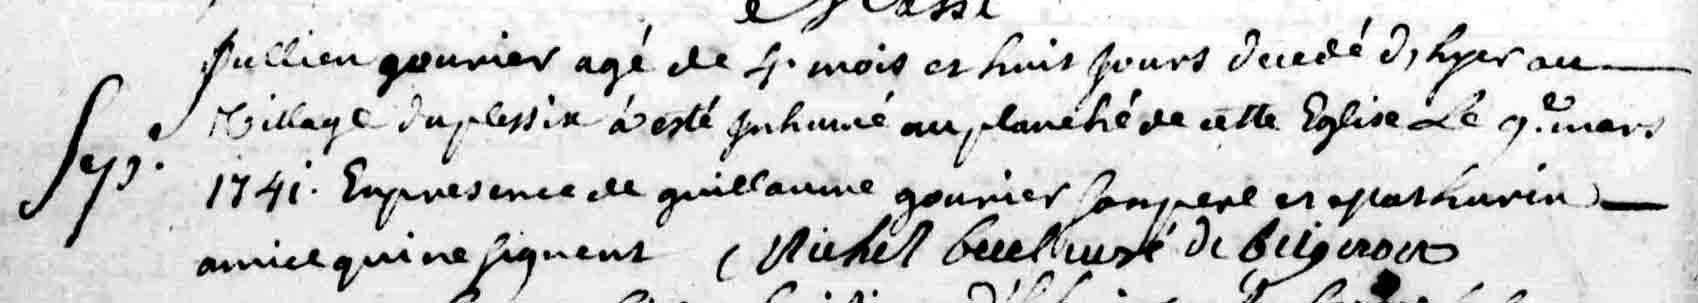 Jullien gourier agé de 4. mois et huit jours decedé d'hyer au
Sep. Village du plessix à esté Inhumé au planché de cette Eglise Le 9e. mars
1741. En presence de guillaume gourier son pere et Mathurin
amice qui ne signent Michel recteur de